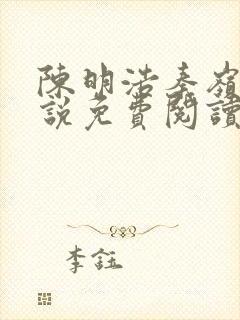 陳明浩秦嶺
說免費閱讀
李鈺